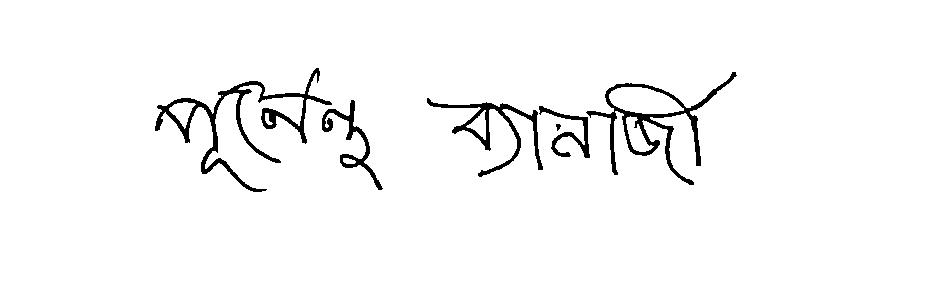 পূর্নেন্দু ব্যানার্জী